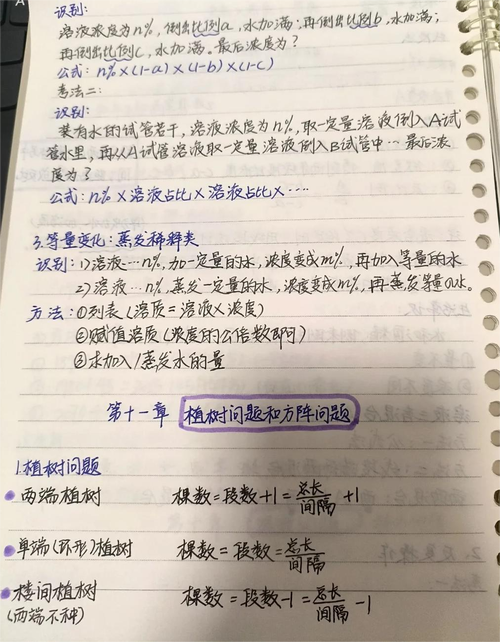 识别:
溶液浓度为n%,倒出比例a,水加满;再倒出比例b,水加满;
再倒出比例c,水加满。最后浓度为?
公式: n%×(1-a)×(1-b)×(1-c)
考法二:
识别:
装有水的试管若干,溶液浓度为n%,取一定量溶液倒入A试
管水里,再从A试管溶液取一定量溶液倒入B试管中…最后浓
度为?
公式: n%×溶液占比×溶液占比×…
3.等量变化:蒸发稀释类
识别: 1)溶液…n%,加一定量的水,浓度变成m%,再加入等量的水
2)溶液…n%,蒸发一定量的水,浓度变成m%,再蒸发等量的水。
方法: ①列表(溶质=溶液×浓度)
②赋值溶质(浓度的公倍数即可)
③求加入/蒸发水的量
第十一章 植树问题和方阵问题
1.植树问题
两端植树 棵数=段数+1=总长/间隔+1
单端(环形)植树 棵数=段数=总长/间隔
楼间植树 棵数=段数-1=总长/间隔-1
(两端不种)